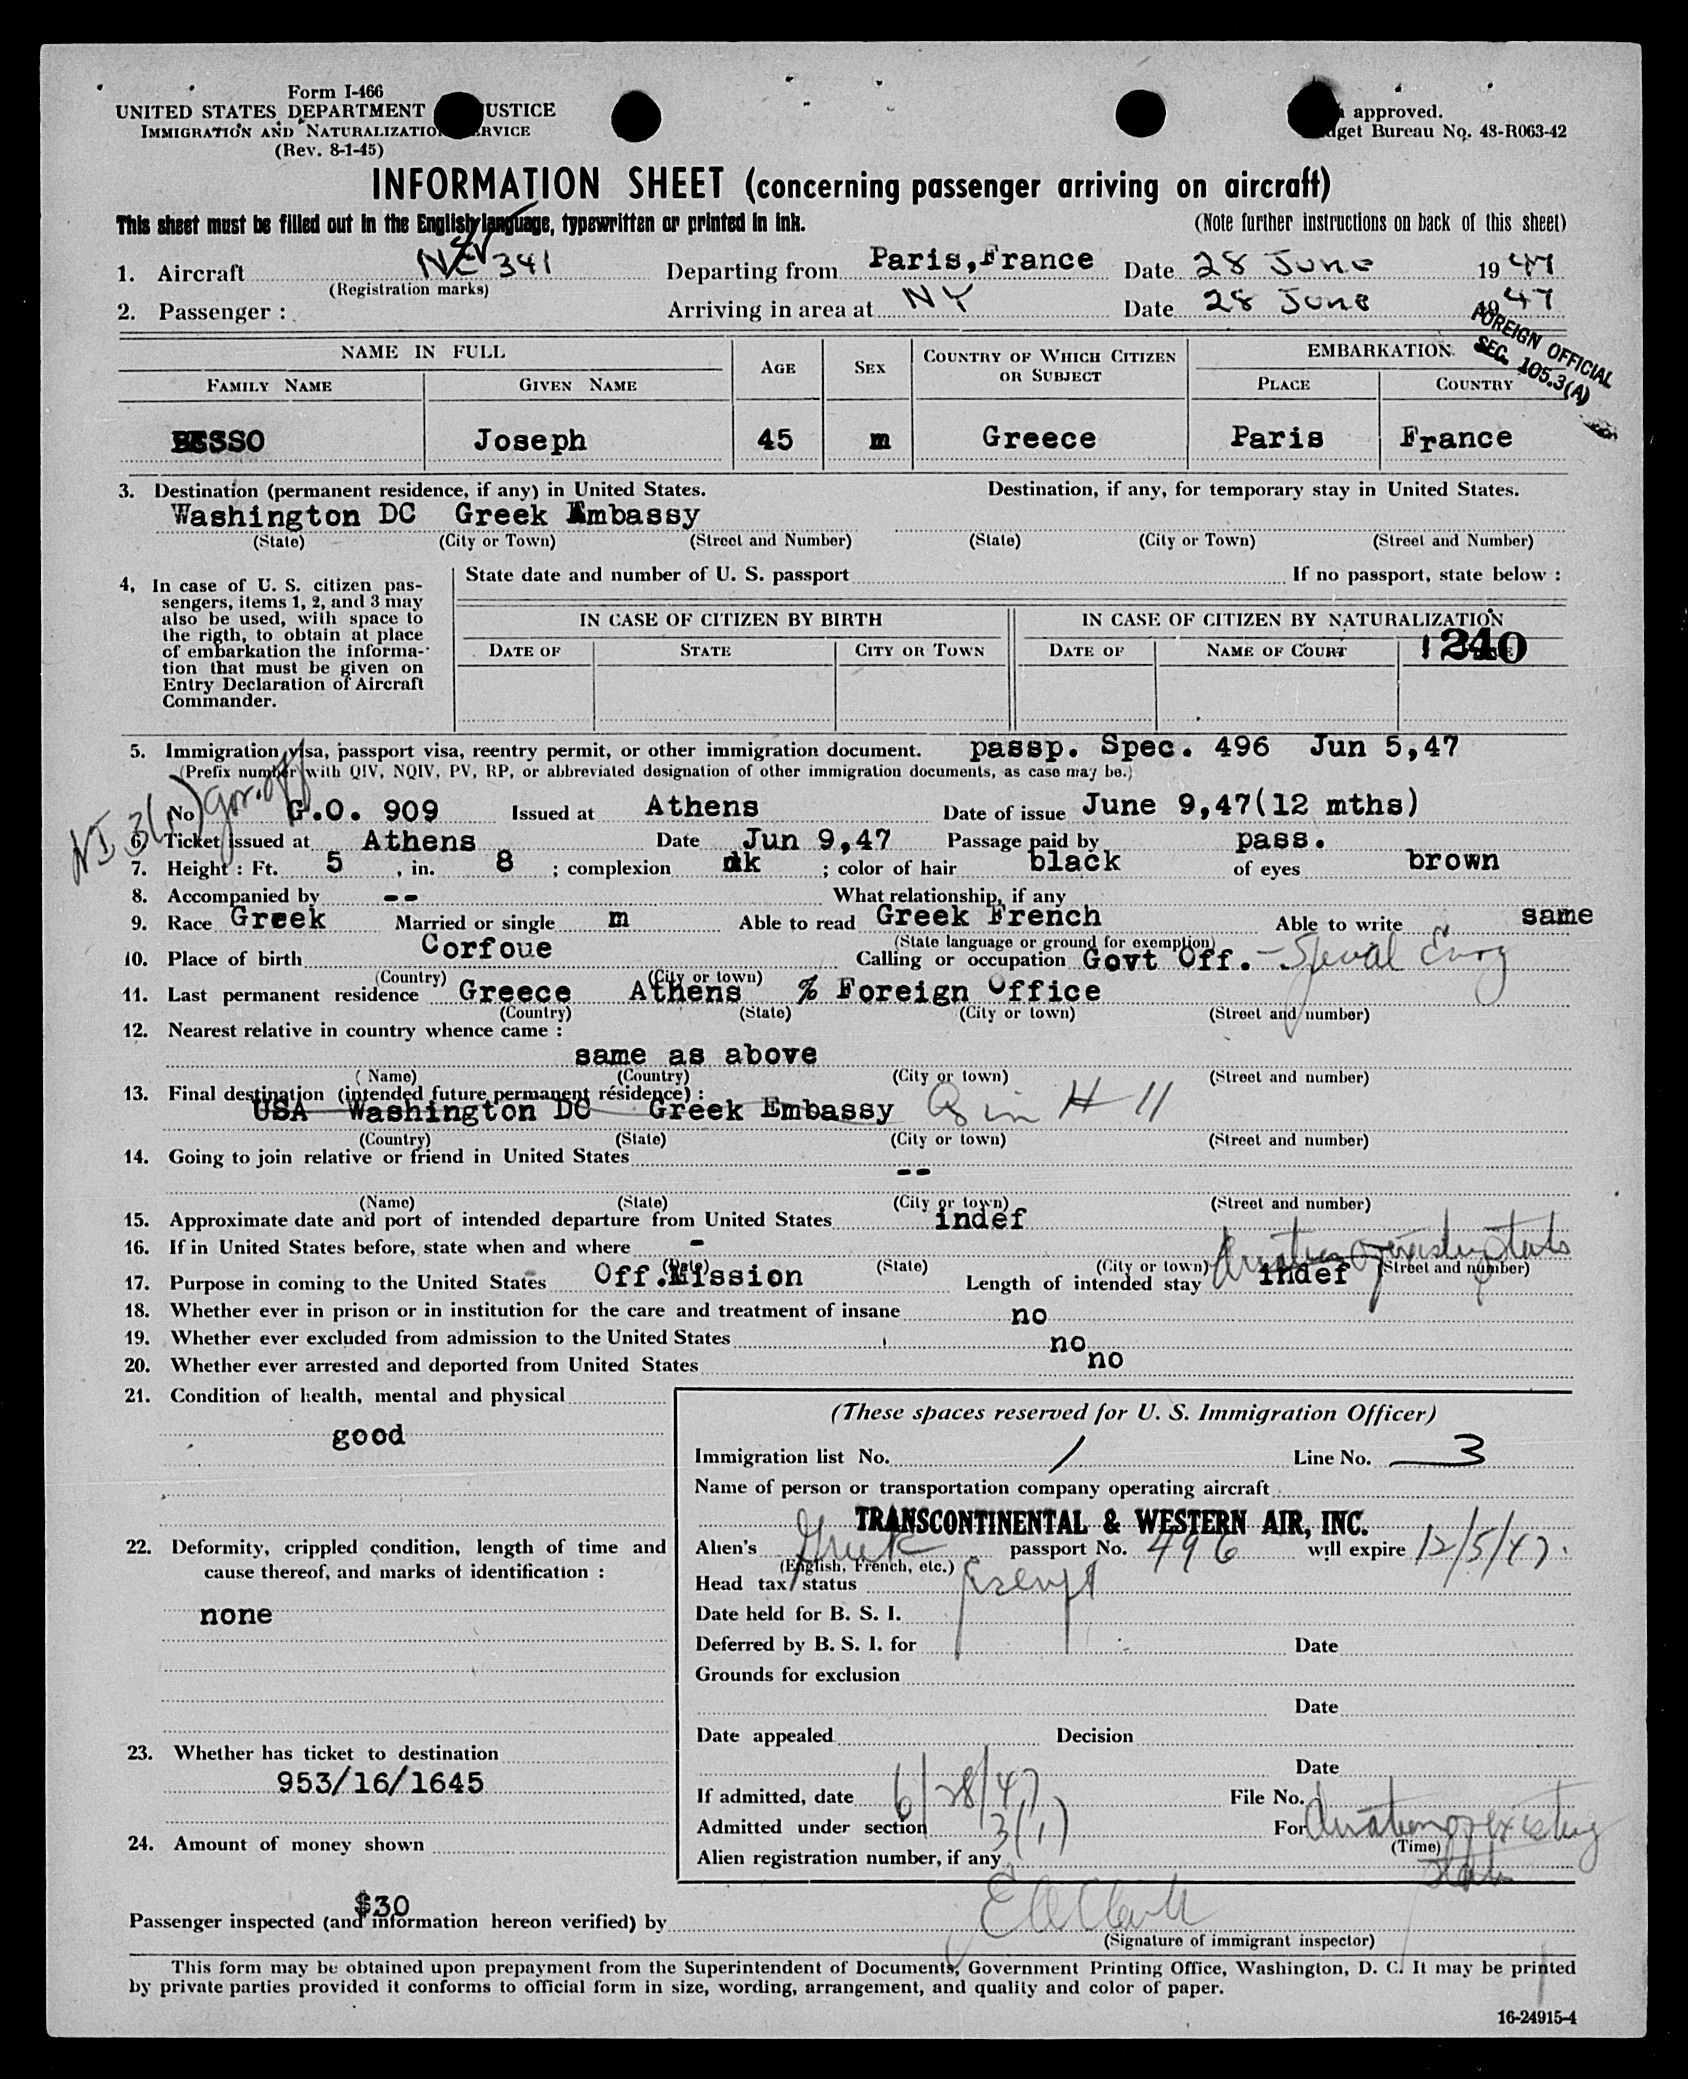 Form I-466
UNITED STATES DEPARTMENT USTICE
IMMIGRATION AND NATURALIZATIO RVICE
(Rev. 8-1-45)
approved.
get Bureau No. 43-R063-42
INFORMATION SHEET (concerning passenger arriving on aircraft)
This sheet must be filled out in the English language, typewritten or printed in ink. (Note further instructions on back of this sheet)
1. Aircraft 341 Departing from Paris, France Date 28 June 1947
(Registration marks)
2. Passenger : Arriving in area at NY Date 28 June 1947
FOREIGN OFFICIAL
SEC. 105.3(A)
NAME IN FULL AGE SEX COUNTRY OF WHICH CITIZEN OR SUBJECT EMBARKATION
FAMILY NAME GIVEN NAME PLACE COUNTRY
BESSO Joseph 45 m Greece Paris France
3. Destination (permanent residence, if any) in United States. Destination, if any, for temporary stay in United States.
Washington DC Greek Embassy
(State) (City or Town) (Street and Number) (State) (City or Town) (Street and Number)
4. In case of U. S. citizen pas-
sengers, items 1, 2, and 3 may
also be used, with space to
the rigth, to obtain at place
of embarkation the informa-
tion that must be given on
Entry Declaration of Aircraft
Commander.
State date and number of U. S. passport If no passport, state below :
IN CASE OF CITIZEN BY BIRTH IN CASE OF CITIZEN BY NATURALIZATION
DATE OF STATE CITY OR TOWN DATE OF NAME OF COURT 1240
5. Immigration visa, passport visa, reentry permit, or other immigration document. passp. Spec. 496 Jun 5,47
(Prefix number with QIV, NQIV, PV, RP, or abbreviated designation of other immigration documents, as case may be.)
No G.O. 909 Issued at Athens Date of issue June 9,47(12 mths)
6. Ticket issued at Athens Date Jun 9,47 Passage paid by pass.
7. Height : Ft. 5 , in. 8 ; complexion dk ; color of hair black of eyes brown
8. Accompanied by -- What relationship, if any
9. Race Greek Married or single m Able to read Greek French Able to write same
(State language or ground for exemption)
10. Place of birth Corfoue Calling or occupation Govt Off. - Special Envoy
(Country) (City or town)
11. Last permanent residence Greece Athens % Foreign Office
(Country) (State) (City or town) (Street and number)
12. Nearest relative in country whence came :
same as above
(Name) (Country) (City or town) (Street and number)
13. Final destination (intended future permanent résidence) :
USA Washington DC Greek Embassy
(Country) (State) (City or town) (Street and number)
14. Going to join relative or friend in United States
--
(Name) (State) (City or town) (Street and number)
15. Approximate date and port of intended departure from United States indef
16. If in United States before, state when and where -
(Date) (State) (City or town) (Street and number)
17. Purpose in coming to the United States Off.Mission Length of intended stay indef duration of existing status
18. Whether ever in prison or in institution for the care and treatment of insane no
19. Whether ever excluded from admission to the United States no
20. Whether ever arrested and deported from United States no
21. Condition of health, mental and physical
good
22. Deformity, crippled condition, length of time and
cause thereof, and marks of identification :
none
23. Whether has ticket to destination
953/16/1645
24. Amount of money shown
$30
(These spaces reserved for U. S. Immigration Officer)
Immigration list No. 1 Line No. 3
Name of person or transportation company operating aircraft
TRANSCONTINENTAL & WESTERN AIR, INC.
Alien's Greek passport No. 496 will expire 12/5/47.
(English, French, etc.)
Head tax status Exempt
Date held for B. S. I.
Deferred by B. S. I. for Date
Grounds for exclusion
Date
Date appealed Decision
Date
If admitted, date 6/28/47 File No.
Admitted under section 3(1) For duration of existing
(Time)
Alien registration number, if any
Passenger inspected (and information hereon verified) by
(Signature of immigrant inspector)
This form may be obtained upon prepayment from the Superintendent of Documents, Government Printing Office, Washington, D. C. It may be printed
by private parties provided it conforms to official form in size, wording, arrangement, and quality and color of paper.
16-24915-4